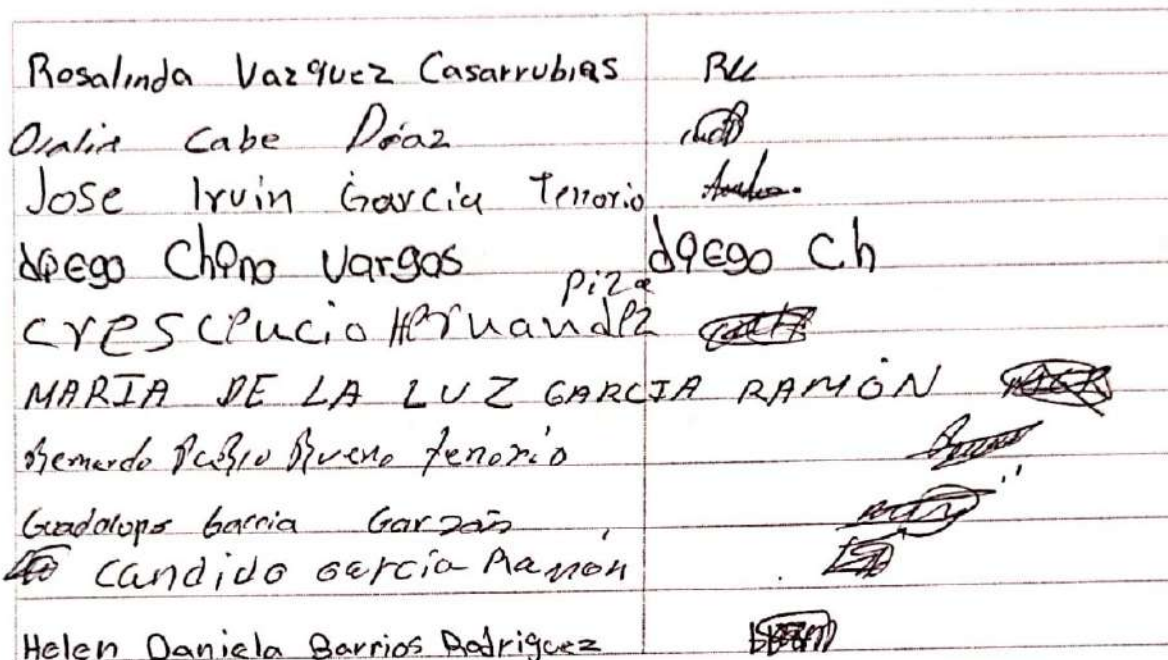 Rosalinda Vazquez Casarrubias RU
Oralia Cabe Díaz
Jose Irvin García Tenorio
diego Chino Vargas diego Ch
Piza
crescencio Hernandez
MARIA DE LA LUZ GARCIA RAMÓN
Bernardo Pablo Bueno Tenorio
Guadalupe Garcia Garzón
Candido Garcia Ramón
Helen Daniela Barrios Rodriguez